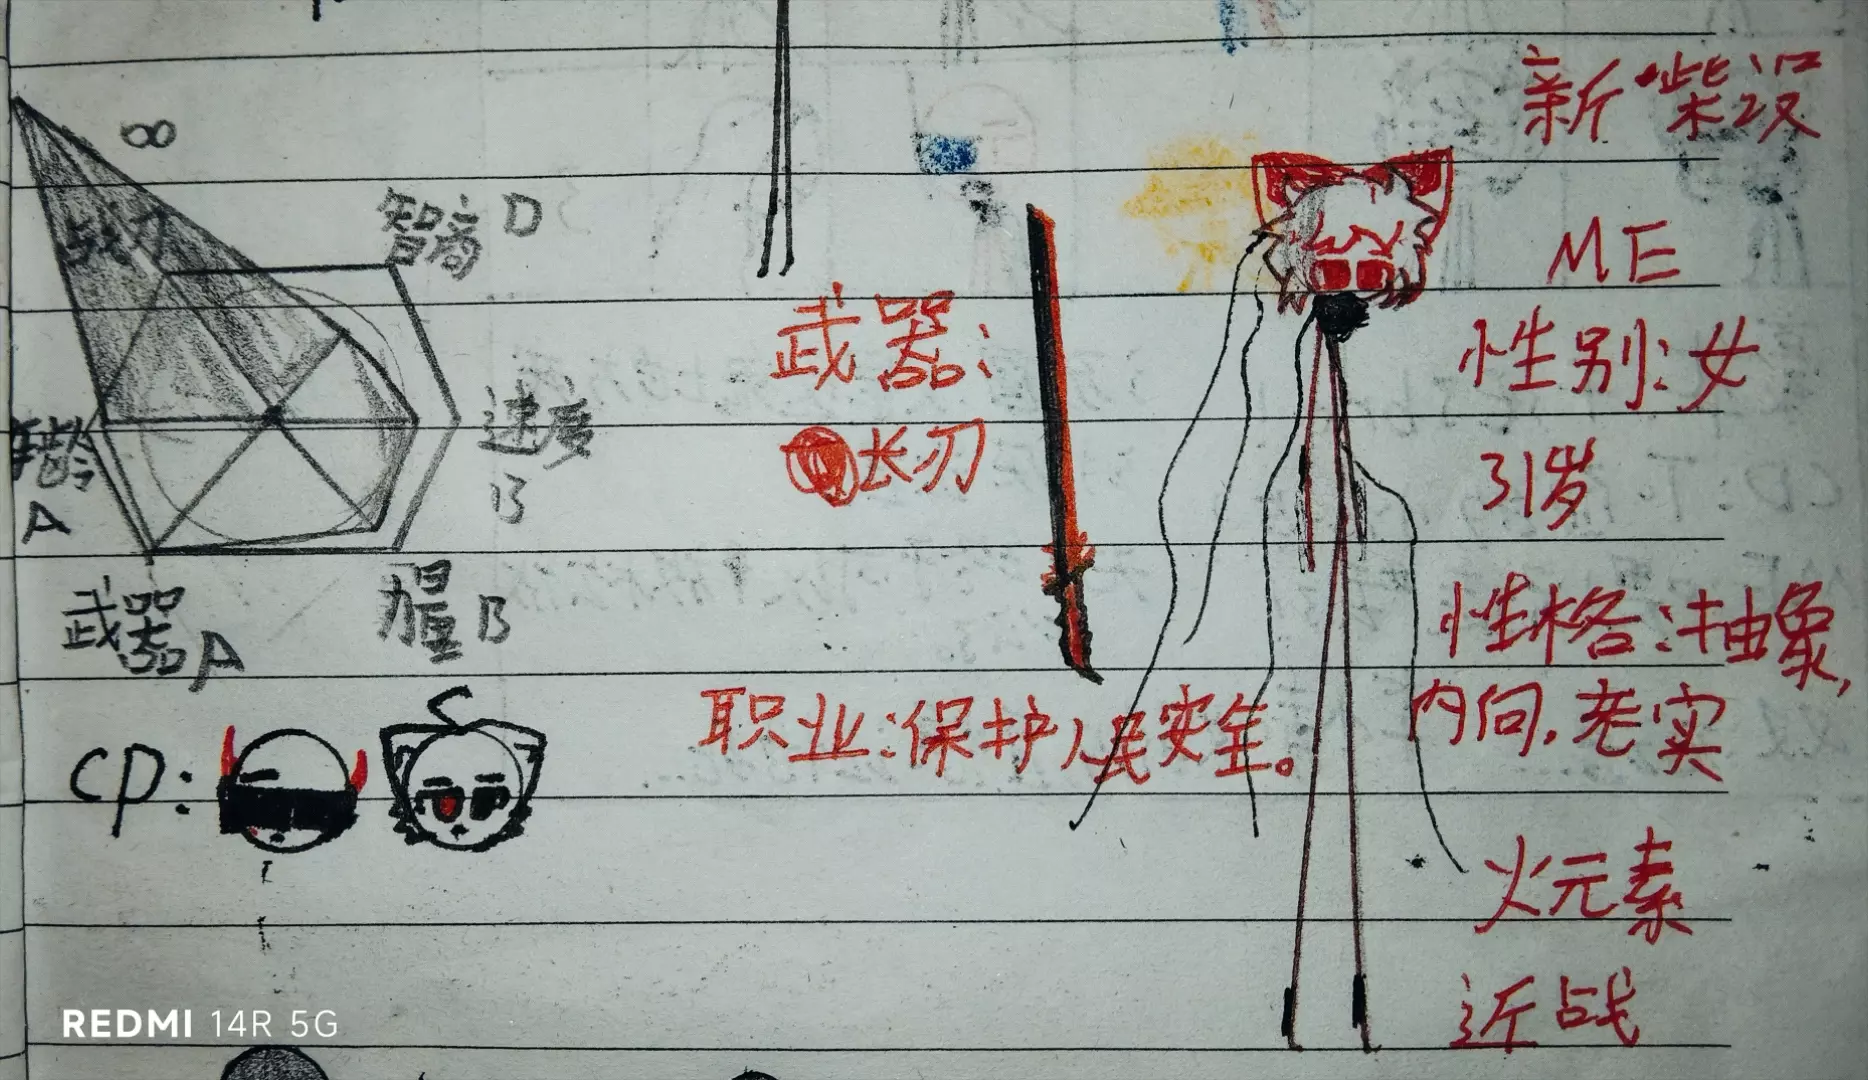 新柴汉
∞
战力
智商 D
ME
武器:
长刃
性别:女
年龄
A
速度
B
31岁
武器 A
力量 B
性格:抽象,
内向,老实
职业:保护人民安全。
cp:
火元素
近战
REDMI 14R 5G